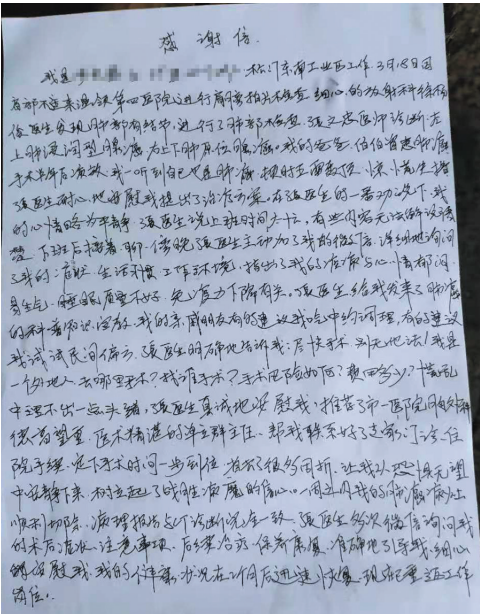 感谢信.
我是 松门东南工业区工作. 3月18日因
胃部不适来温岭第四医院进行胃 检查. 细心的放射科徐
医生发现肺部有结节, 进行了肺部检查. 张 医师诊断: 左
上肺浸润型腺癌. 右上下肺 原位腺癌. 我的爸爸、伯伯皆患肺癌
手术半年后 , 我一听到自己也是肺癌, 顿时 , 惊慌失措
张医生耐心地安慰我提出了治疗方案. 在张医生的一番劝说下, 我
的心情略为平静. 张医生说上班时间太忙, 有些内容无法解说清
楚, 下班后接着聊. 傍晚张医生主动加了我的微信, 详细地询问
了我的: 症状 生活习惯 工作环境, 指出了我的症状与心情郁闷、
易生气、睡眠质量不好, 免疫力下降有关。张医生给我发来了肺癌
的科普知识 . 我的亲戚朋友有的建议我吃中药调理, 有的建议
我试试民间偏方. 张医生明确地告诉我: 尽快手术 别无他法! 我是
一个外地人 去哪里手术? 找谁手术? 手术风险如何? 费用多少? 慌乱
中理不出一点头绪. 张医生真诚地安慰我, 推荐了市一医院
德高望重、医术精湛的 立群主任. 帮我联系好了 门诊、住
院手续, 定下手术时间一步到位 省去了很多周折. 让我从恐惧无望
中安静下来 树立起了战胜病魔的信心。一周之内我的肺癌病灶
顺利切除. 病理报告与诊断完全一致. 张医生多次微信询问我
的术后症状、注意事项、后续治疗、保养康复. 准确地引导我. 细心
的安慰我. 我的 状况在2个月后迅速恢复. 现已重返工作
岗位!